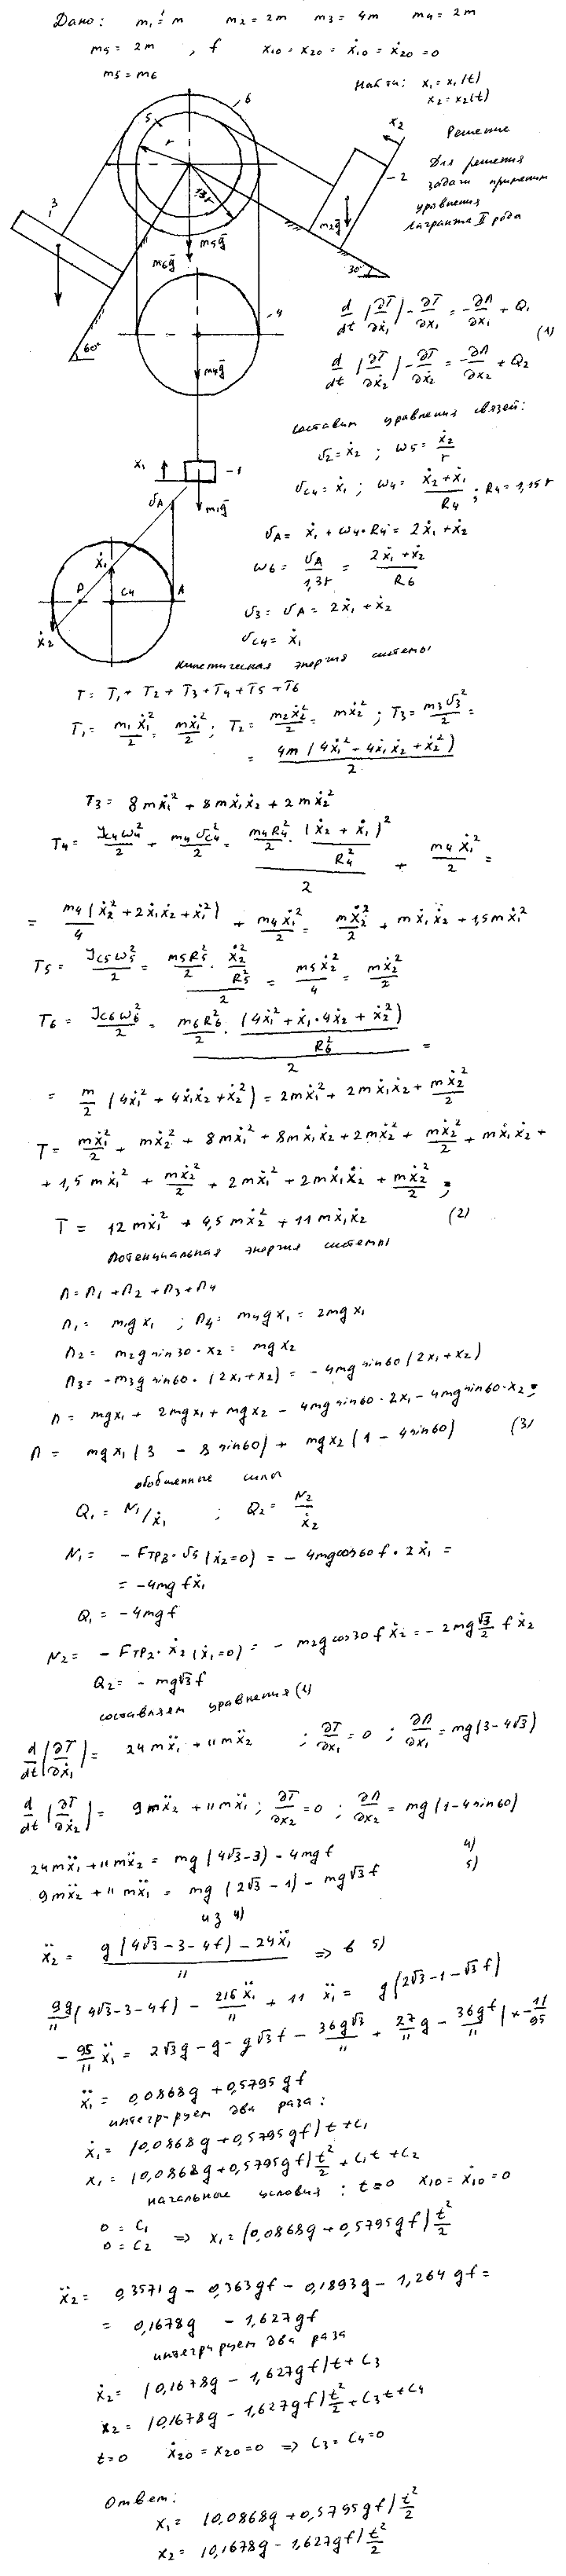 Дано: m₁ = m m₂ = 2m m₃ = 4m m₄ = 2m
m₅ = 2m , f x₁₀ = x₂₀ = ẋ₁₀ = ẋ₂₀ = 0
m₅ = m₆
Найти: x₁ = x₁(t)
x₂ = x₂(t)
Решение
Для решения
задачи применим
уравнения
Лагранжа II рода
6
5
r
1,3r
3
x₂
2
m₂g̅
m₅g̅
m₆g̅
30°
60°
4
m₄g̅
d/dt (∂T/∂ẋ₁) - ∂T/∂x₁ = -∂П/∂x₁ + Q₁
(1)
d/dt (∂T/∂ẋ₂) - ∂T/∂x₂ = -∂П/∂x₂ + Q₂
составим уравнения связей:
v₂ = ẋ₂ ; ω₅ = ẋ₂/r
x₁
1
m₁g̅
v_C4 = ẋ₁ ; ω₄ = (ẋ₂ + ẋ₁)/R₄ ; R₄ = 1,15r
v_A
v_A = ẋ₁ + ω₄·R₄ = 2ẋ₁ + ẋ₂
ẋ₁
P C₄ A
ẋ₂
ω₆ = v_A/1,3r = (2ẋ₁ + ẋ₂)/R₆
v₃ = v_A = 2ẋ₁ + ẋ₂
v_C4 = ẋ₁
Кинетическая энергия системы
T = T₁ + T₂ + T₃ + T₄ + T₅ + T₆
T₁ = m₁ẋ₁²/2 = mẋ₁²/2 ; T₂ = m₂ẋ₂²/2 = mẋ₂² ; T₃ = m₃v₃²/2 =
= 4m(4ẋ₁² + 4ẋ₁ẋ₂ + ẋ₂²)/2
T₃ = 8mẋ₁² + 8mẋ₁ẋ₂ + 2mẋ₂²
T₄ = J_C4ω₄²/2 + m₄v_C4²/2 = (m₄R₄²/2 · (ẋ₂ + ẋ₁)²/R₄²)/2 + m₄ẋ₁²/2 =
= m₄(ẋ₂² + 2ẋ₁ẋ₂ + ẋ₁²)/4 + m₄ẋ₁²/2 = mẋ₂²/2 + mẋ₁ẋ₂ + 1,5mẋ₁²
T₅ = J_C5ω₅²/2 = (m₅R₅²/2 · ẋ₂²/R₅²)/2 = m₅ẋ₂²/4 = mẋ₂²/2
T₆ = J_C6ω₆²/2 = (m₆R₆²/2 · (4ẋ₁² + ẋ₁·4ẋ₂ + ẋ₂²)/R₆²)/2 =
= m/2 (4ẋ₁² + 4ẋ₁ẋ₂ + ẋ₂²) = 2mẋ₁² + 2mẋ₁ẋ₂ + mẋ₂²/2
T = mẋ₁²/2 + mẋ₂² + 8mẋ₁² + 8mẋ₁ẋ₂ + 2mẋ₂² + mẋ₂²/2 + mẋ₁ẋ₂ +
+ 1,5mẋ₁² + mẋ₂²/2 + 2mẋ₁² + 2mẋ₁ẋ₂ + mẋ₂²/2 ;
T = 12mẋ₁² + 4,5mẋ₂² + 11mẋ₁ẋ₂ (2)
Потенциальная энергия системы
П = П₁ + П₂ + П₃ + П₄
П₁ = m₁gx₁ ; П₄ = m₄gx₁ = 2mgx₁
П₂ = m₂g sin30·x₂ = mgx₂
П₃ = -m₃g sin60·(2x₁ + x₂) = -4mg sin60(2x₁ + x₂)
П = mgx₁ + 2mgx₁ + mgx₂ - 4mg sin60·2x₁ - 4mg sin60·x₂ ;
П = mgx₁(3 - 8sin60) + mgx₂(1 - 4sin60) (3)
обобщенные силы
Q₁ = N₁/ẋ₁ ; Q₂ = N₂/ẋ₂
N₁ = -Fтр₃·v₃(ẋ₂=0) = -4mg cos60 f·2ẋ₁ =
= -4mgfẋ₁
Q₁ = -4mgf
N₂ = -Fтр₂·ẋ₂(ẋ₁=0) = -m₂g cos30 fẋ₂ = -2mg √3/2 fẋ₂
Q₂ = -mg√3 f
составляем уравнения (1)
d/dt (∂T/∂ẋ₁) = 24mẍ₁ + 11mẍ₂ ; ∂T/∂x₁ = 0 ; ∂П/∂x₁ = mg(3 - 4√3)
d/dt (∂T/∂ẋ₂) = 9mẍ₂ + 11mẍ₁ ; ∂T/∂x₂ = 0 ; ∂П/∂x₂ = mg(1 - 4sin60)
24mẍ₁ + 11mẍ₂ = mg(4√3 - 3) - 4mgf 4)
9mẍ₂ + 11mẍ₁ = mg(2√3 - 1) - mg√3 f 5)
из 4)
ẍ₂ = (g(4√3 - 3 - 4f) - 24ẍ₁)/11 => в 5)
9g/11 (4√3 - 3 - 4f) - 216ẍ₁/11 + 11ẍ₁ = g(2√3 - 1 - √3 f)
-95/11 ẍ₁ = 2√3g - g - g√3f - 36g√3/11 + 27/11 g - 36gf/11 | × -11/95
ẍ₁ = 0,0868g + 0,5795gf
интегрируем два раза:
ẋ₁ = (0,0868g + 0,5795gf)t + C₁
x₁ = (0,0868g + 0,5795gf) t²/2 + C₁t + C₂
начальные условия: t=0 x₁₀ = ẋ₁₀ = 0
0 = C₁
0 = C₂ => x₁ = (0,0868g + 0,5795gf) t²/2
ẍ₂ = 0,3571g - 0,363gf - 0,1893g - 1,264gf =
= 0,1678g - 1,627gf
интегрируем два раза
ẋ₂ = (0,1678g - 1,627gf)t + C₃
x₂ = (0,1678g - 1,627gf) t²/2 + C₃t + C₄
t=0 ẋ₂₀ = x₂₀ = 0 => C₃ = C₄ = 0
Ответ:
x₁ = (0,0868g + 0,5795gf) t²/2
x₂ = (0,1678g - 1,627gf) t²/2